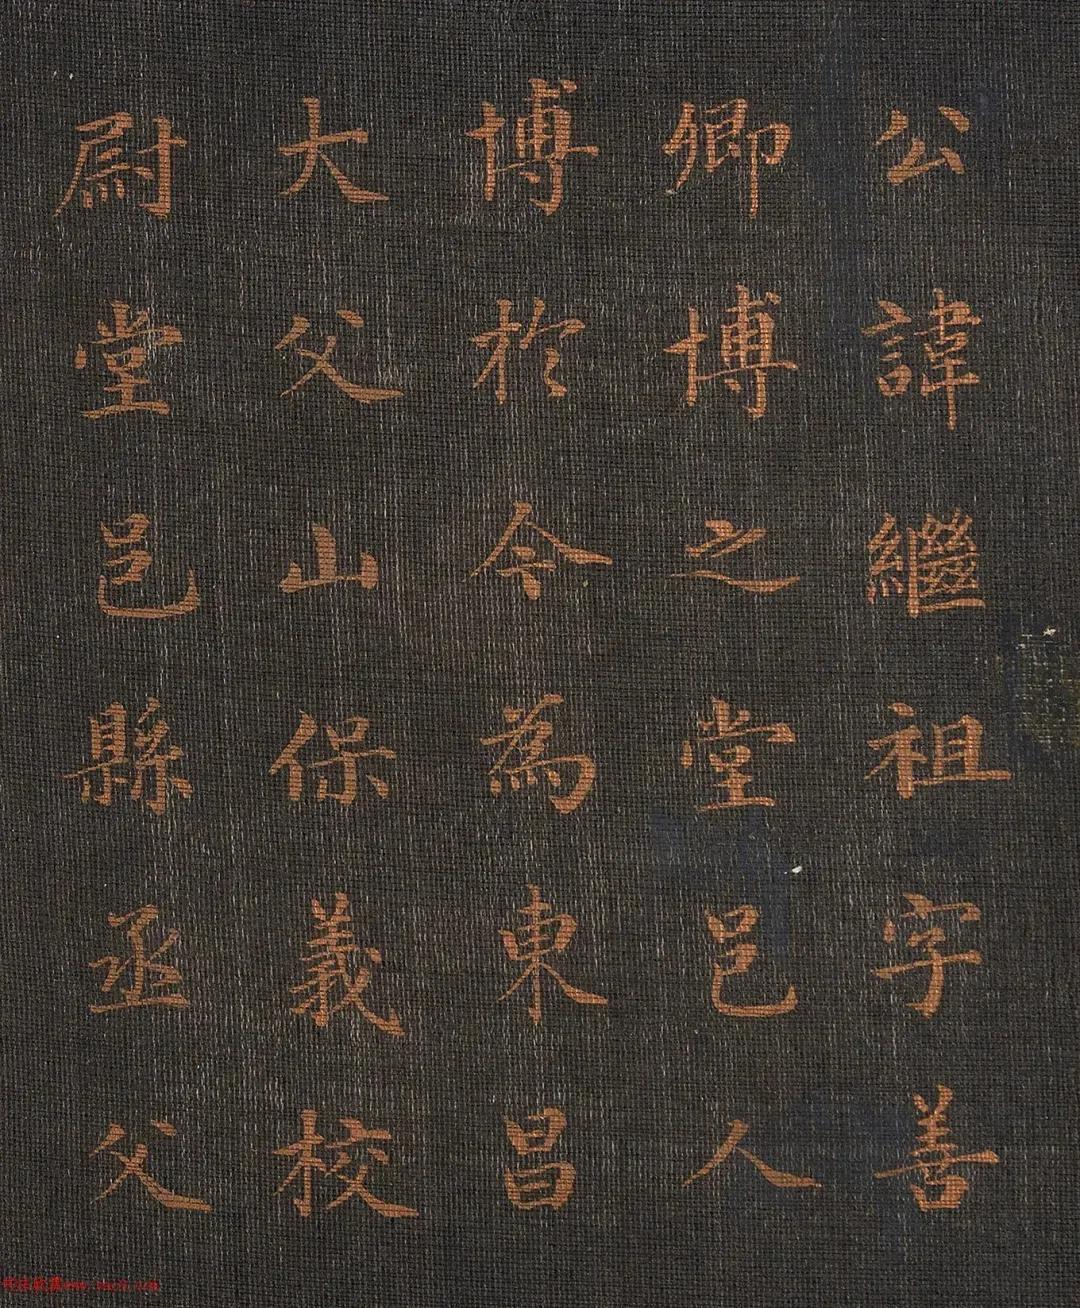 公諱繼祖字善
卿博之堂邑人
博於今為東昌
大父山保義校
尉堂邑縣丞父